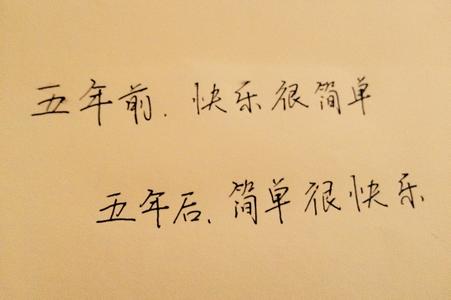 五年前.快乐很简单
五年后.简单很快乐